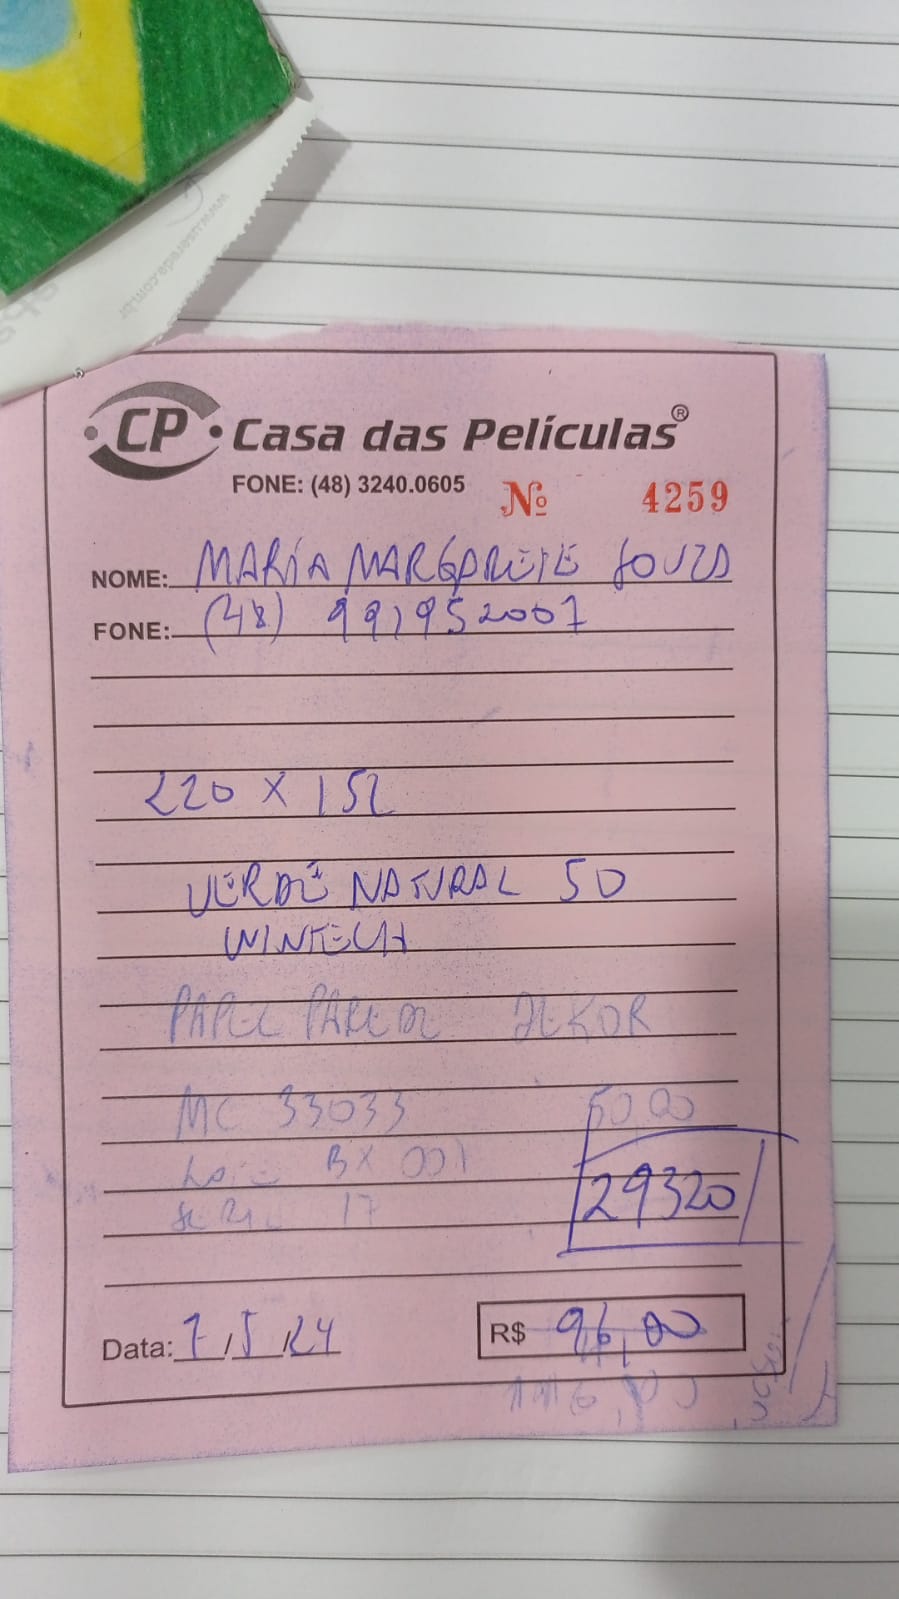 CP Casa das Películas®
FONE: (48) 3240.0605 Nº 4259
NOME: MARIA MARGARETE SOUZA
FONE: (48) 991952007
220 X 152
VERDE NATURAL 50
WINTECH
PAPEL PAREDE DEKOR
MC 33033 50,00
LOTE BX 001
SERIE 17
29320
Data: 7/5/24 R$ 96,00